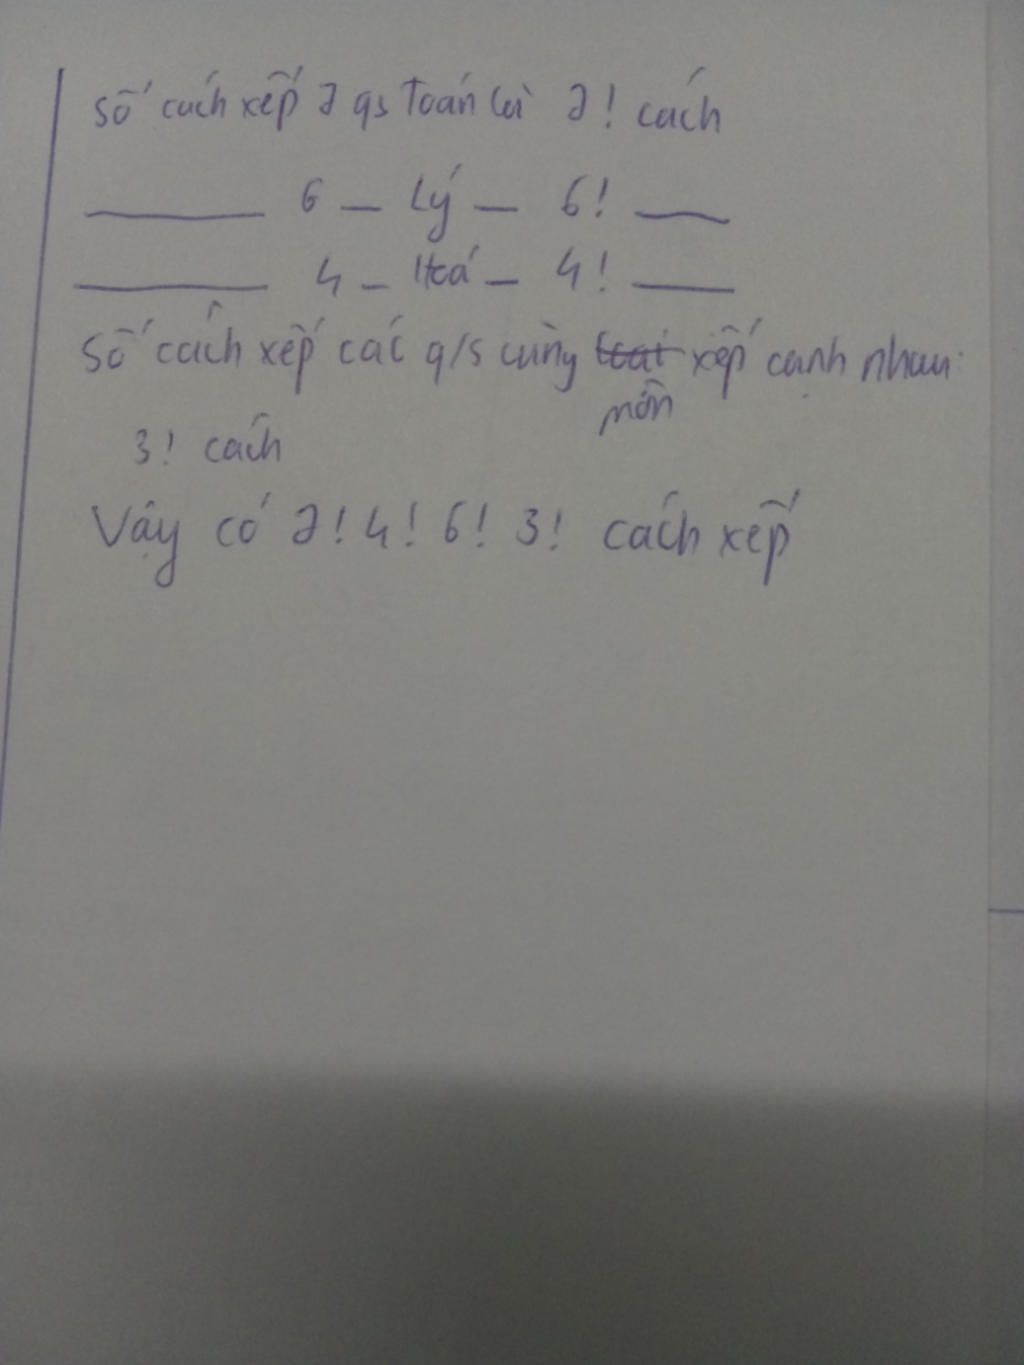 Số cách xếp 2 qs Toán là 2! cách
____ 6 _ Lý _ 6! ____
____ 4 _ Hoá _ 4! ____
Số cách xếp các q/s cùng môn xếp cạnh nhau:
3! cách
Vậy có 2! 4! 6! 3! cách xếp